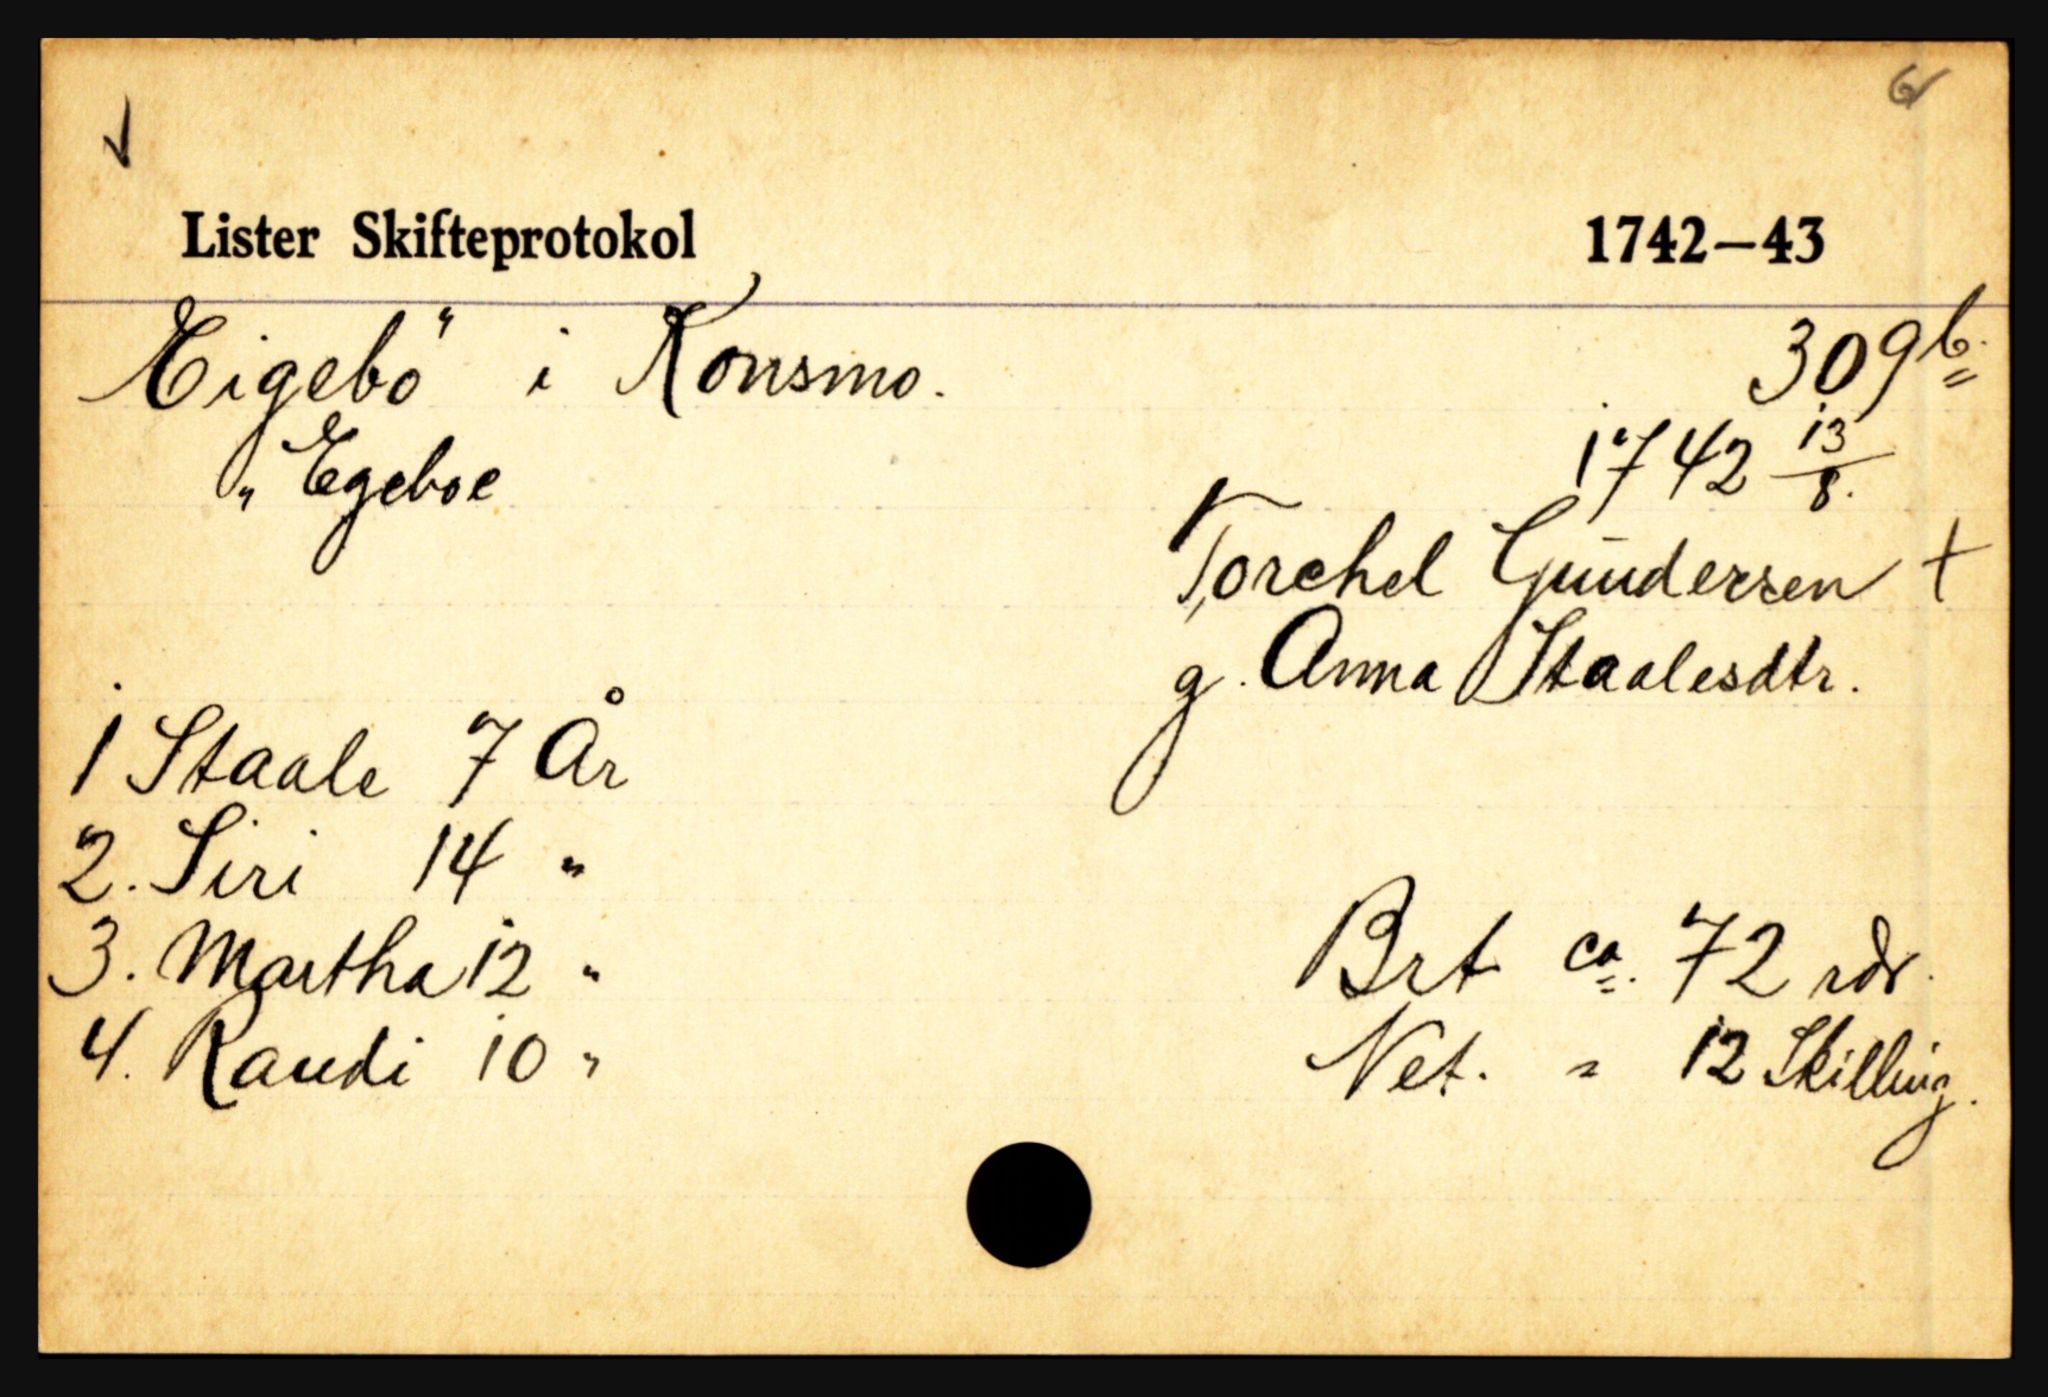 6
Lister Skifteprotokol 1742–43
Eigebö i Konsmo. 309b.
„ Egeboe 1742 13/8.
Torchel Gundersen +
g. Anna Staalesdtr.
1 Staale 7 År
2. Siri 14 "
3. Martha 12 "
4. Randi 10 "
Brt ca. 72 rdr.
Net. " 12 Skilling.